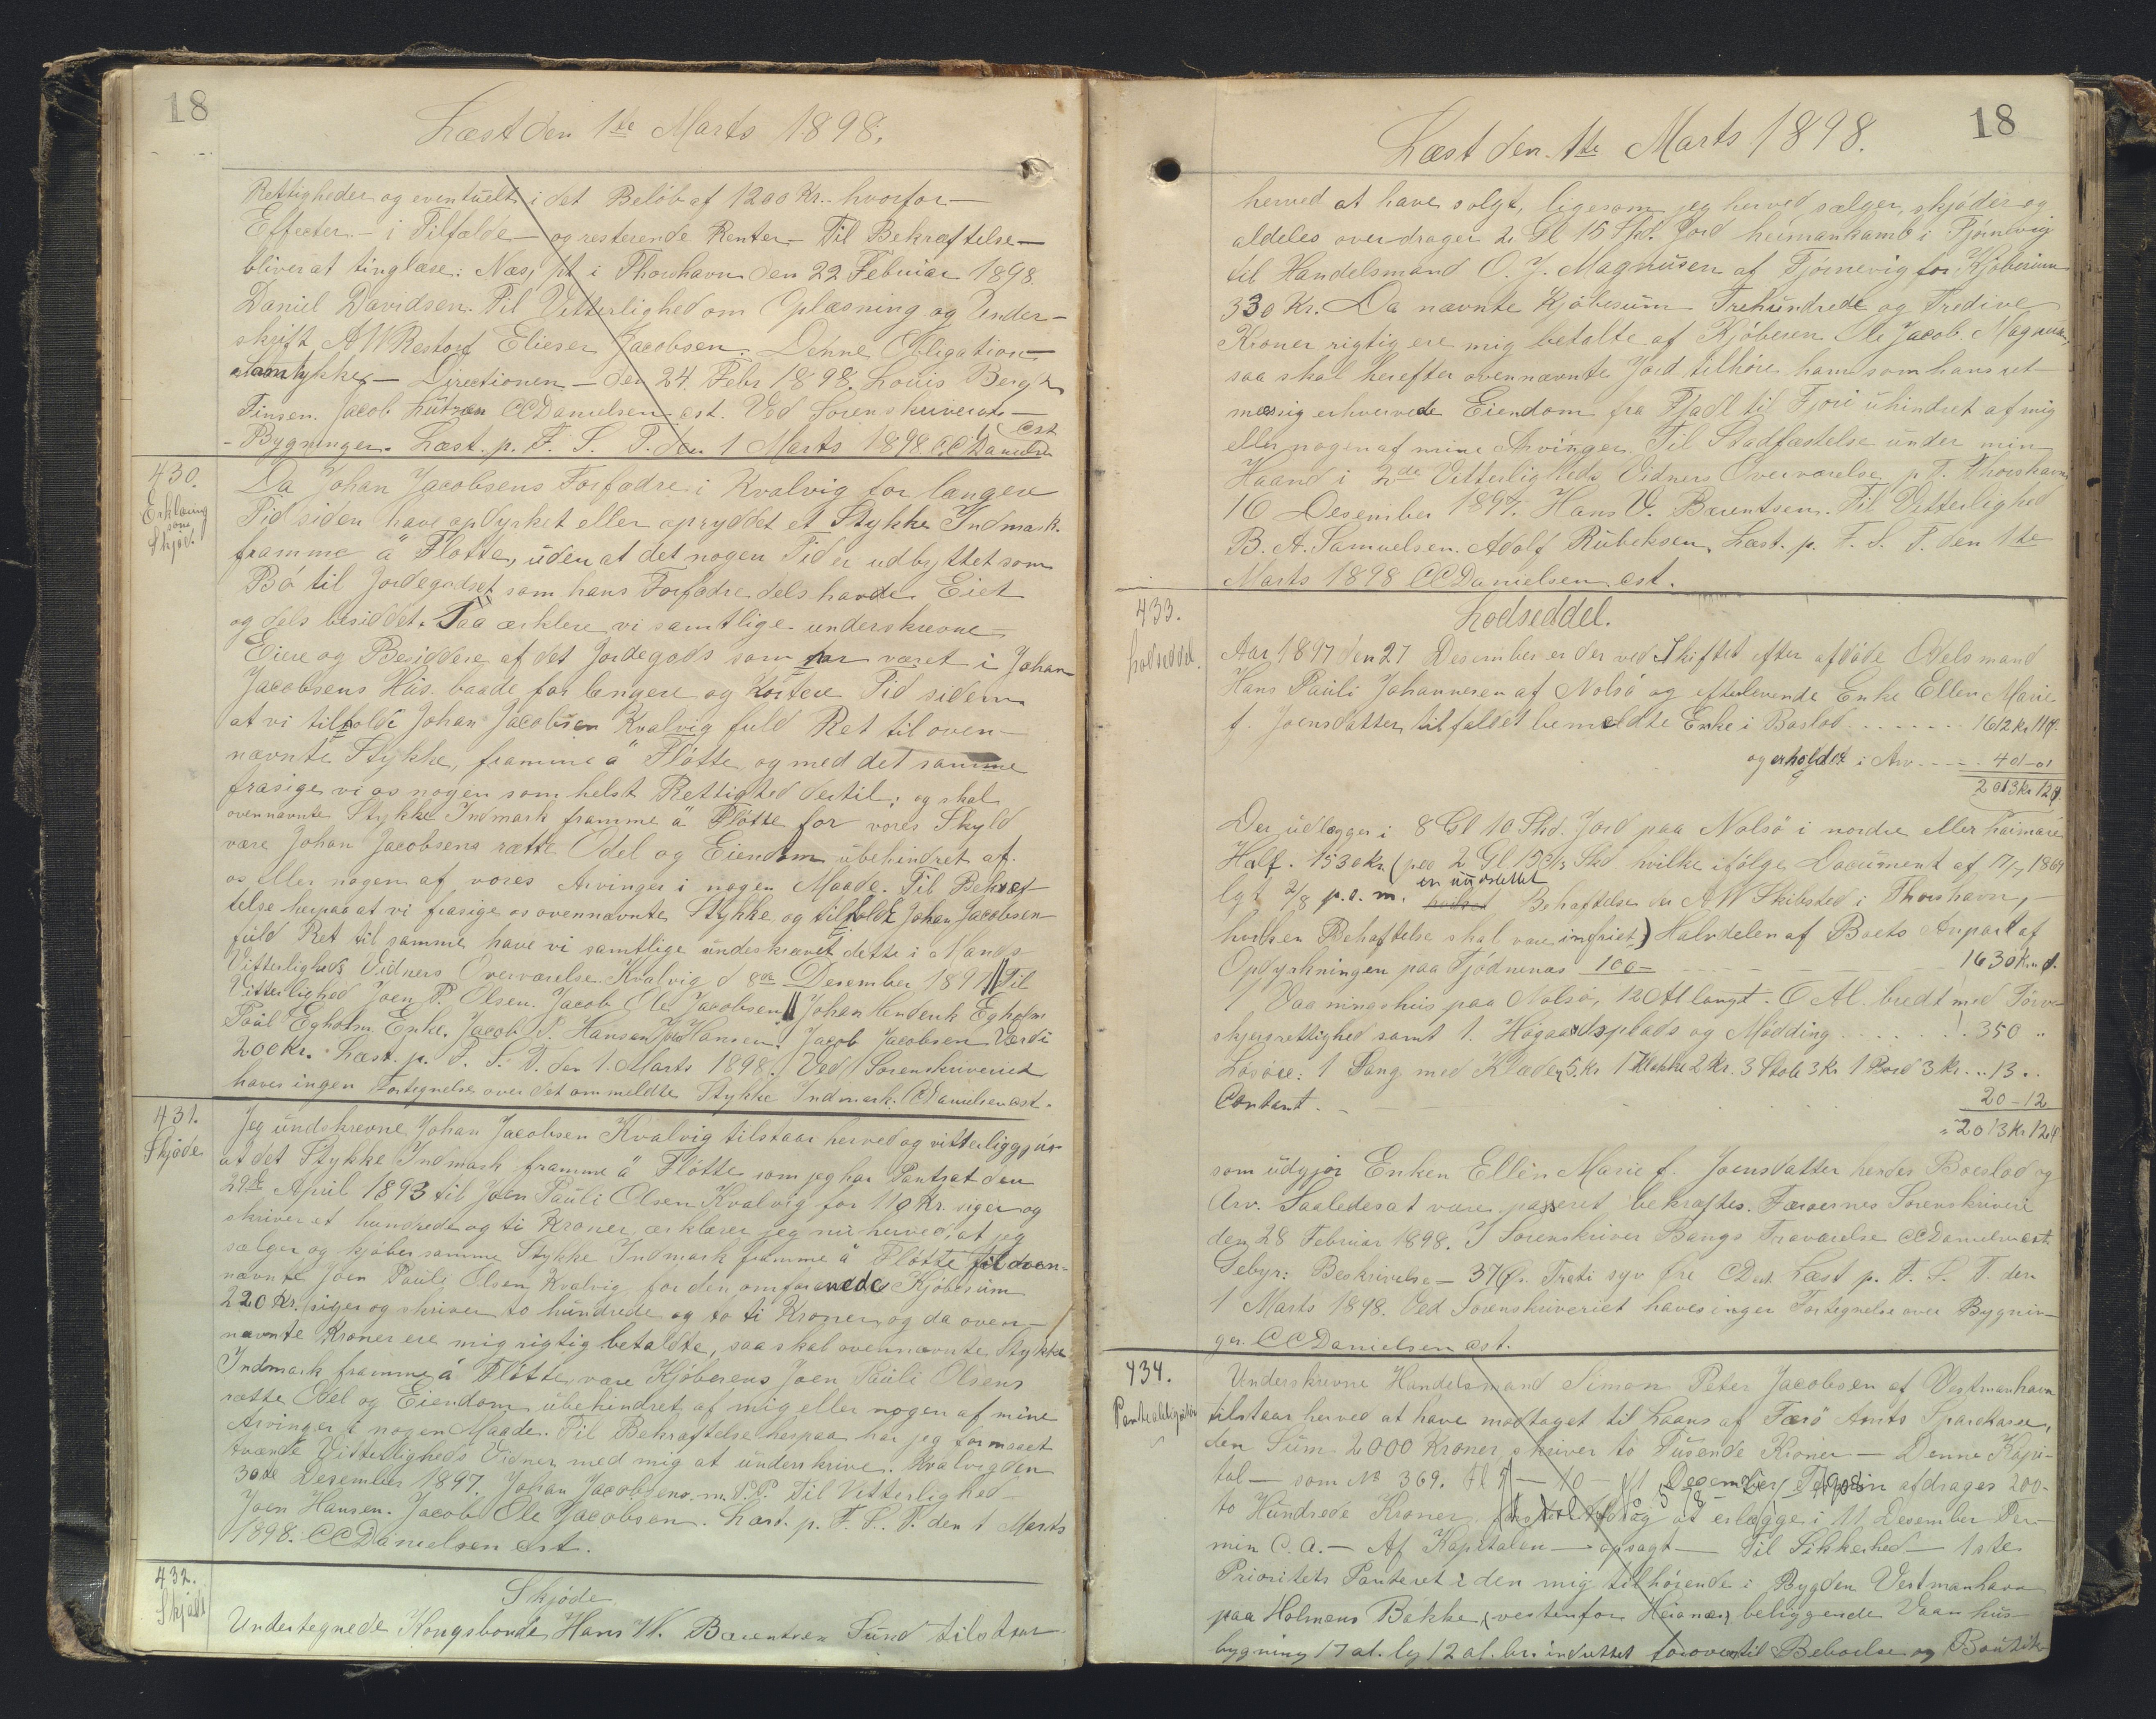 18
Læst den 1ste Marts 1898.
Rettigheder og eventuelt i det Beløb af 1200 Kr. hvorfor —
Effecter — i Tilfælde — og resterende Renter — Til Bekræftelse —
bliver at tinglæse. Næs, pt i Thorshavn den 22 Februar 1898.
Daniel Davidsen. Til Vitterlighed om Oplæsning og Under-
skrift A W Restorf Elieser Jacobsen. Denne Obligation —
samtykkes — Directionen — den 24 Febr 1898. Louis Bergh
Finsen. Jacob Lützen CCDanielsen cst. Ved Sorenskriveriet —
- Bygninger. Læst. p. F. S. T. den 1 Marts 1898. CCDanielsen cst
430.
Erklæring
som
Skjød.
Da Johan Jacobsens Forfædre i Kvalvig for længere
Tid siden have opdyrket eller opryddet et Stykke Indmark.
framme á Fløtte, uden at det nogen Tid er udbyttet som
Bø til Jordegodset som hans Forfædre dels havde Eiet
og dels besiddet. Saa erklere vi samtlige underskrevne
Eiere og Besiddere af det Jordegods som har været i Johan
Jacobsens Hus. baade for længere og kortere Tid siden
at vi tilholde Johan Jacobsen Kvalvig fuld Ret til oven-
nævnte Stykke, framme á Fløtte, og med det samme
frasige vi os nogen som helst Rettighed dertil; og skal
ovennævnte Stykke Indmark framme á Fløtte for vores Skyld
være Johan Jacobsens rætte Odel og Eiendom ubehindret af
os eller nogen af vores Arvinger i nogen Maade. Til Bekræf
telse herpaa at vi frasige os ovennævnte Stykke og tilholde Johan Jacobsen
fuld Ret til samme have vi samtlige underskrevet dette i 2 Mands
Vitterligheds Vidners Overværelse Kvalvig d 8de Desember 1897 || Til
Vitterlighed Joen P. Olsen. Jacob Ole Jacobsen || Johan Henderik Egholm
Poul Egholm Enke. Jacob P. Hansen Hansen. Jacob Jacobsen Værdi
200 kr. Læst. p. F. S. T. den 1. Marts 1898. Ved Sorenskriveriet
haves ingen Fortegnelse over det ommeldte Stykke Indmark. CCDanielsen cst.
431.
Skjøde
Jeg undskrevne Johan Jacobsen Kvalvig tilstaar herved og vitterliggjør
at det Stykke Indmark framme á Fløtte som jeg har Pantsat den
29de April 1893 til Joen Pauli Olsen Kvalvig for 110 Kr. siger og
skriver et hundrede og ti Kroner, ærklærer jeg nu herved, at jeg
sælger og kjøber samme Stykke Indmark framme á Fløtte til oven-
nævnte Joen Pauli Olsen Kvalvig for den omforenede Kjøbesum
220 Kr. siger og skriver to hundrede og to ti Kroner, og da oven-
nævnte Kroner ere mig rigtig betaldte, saa skal ovennævnte Stykke
Indmark framme á Fløtte være Kjøberens Joen Pauli Olsens
rætte Odel og Eiendom ubehindret af mig eller nogen af mine
Arvinger i nogen Maade. Til Bekræftelse herpaa har jeg formaaet
tvænde Vitterligheds Vidner med mig at underskrive. Kvalvig den
30te Desember 1897. Johan Jacobsens. m. P.P. Til Vitterlighed —
Joen Hansen. Jacob Ole Jacobsen. Læst. p. F. S. T. den 1 Marts
1898. CCDanielsen cst.
432.
Skjøde
Skjøde
Undertegnede Kongsbonde Hans W. Barentsen Sund tilstaar
18
Læst den 1ste Marts 1898.
herved at have solgt, ligesom jeg herved sælger, skjøder og
aldeles overdrager 2 Gl 15 Skd. Jord heimankamb i Tjørnevig
til Handelsmand O. J. Magnusen af Tjørnevig for Kjøbesum
330 Kr. Da nævnte Kjøbesum Trehundrede og Tredive
Kroner rigtig ere mig betalte af Kjøberen Ole Jacob Magnusen,
saa skal herefter ovennævnte Jord tilhøre ham som hans ret
mæssig erhvervede Eiendom fra Fjadl til Fjøri uhindret af mig
eller nogen af mine Arvinger. Til Stadfæstelse under min
Haand i 2de Vitterligheds Vidners Overværelse p. T. Thorshavn
16 Desember 1897. Hans V. Barentsen. Til Vitterlighed
B. A. Samuelsen. Adolf Rubeksen. Læst. p. F. S. T. den 1ste
Marts 1898 CCDanielsen cst.
433.
Lodseddel.
Lodseddel.
Aar 1897 den 27 Desember er der ved Skiftet efter afdøde Odelsmand
Hans Pauli Johannesen af Nolsø og efterlevende Enke Ellen Marie
f. Joensdatter tilfaldet bemeldte Enke i Boslod . . . . . . 1612 Kr 11 Ø.
og erholdet i Arv - - - - 401-01
2013 Kr 12 Ø.
Der udlægger i 8 Gl 10 Skd. Jord paa Nolsø i nordre eller haimare
Half. 1530 Kr. (paa 2 Gl Skd hvilke ifølge Document af 1869
lgt 2/8 p.a. m. en uudslettet Behæftelse der A W Skibsted i Thorshavn,
hvilken Behæftelse skal være indfriet) Halvdelen af Boets Anpart af
Opdyrkningen paa Tjødnenas 100 — 1630 Kr Ø.
1 Vaaningshus paa Nolsø, 12 Al langt. 6 Al. bredt med Tørve
skjærsrettighed samt 1. Høgaardsplads og Mødding . . . . . 350 ..
Løsøre: 1 Seng med Klæder 5 Kr 1 Klokke 2 Kr. 3 Stole 3 Kr 1 Bord 3 Kr .. 13 ..
Contant. - - - 20-12
2013 Kr. 12 Ø
som udgjør Enken Ellen Marie f. Joensdatter hendes Boeslod og
Arv. Saaledes at være passeret bekræftes. Færøernes Sorenskriveri
den 28 Februar 1898. I Sorenskriver Bangs Fraværelse CCDanielsen cst.
Gebyr: Beskrivelse — 37 Ør. Treti syv Øre CD cst. Læst p. F. S. T. den
1 Marts 1898. Ved Sorenskriveriet haves ingen Fortegnelse over Bygnin-
ger. CCDanielsen cst.
434.
Panteobligation
Underskrevne Handelsmand Simon Peter Jacobsen af Vestmanhavn
tilstaar herved at have modtaget til Laans af Færø Amts Sparekasse,
den Sum 2000 Kroner skriver to Tusende Kroner — Denne Kapi-
tal — som No 369. — 10 — 11 December Termin afdrages 200.
to Hundrede Kroner at erlægge i 11 Desember Ter-
min C.a. — Af Kapitalen — opsagt — Til Sikkerhed — 1ste
Prioritets Panteret i den mig tilhørende i Bygden Vestmanhavn
paa Holmens Bakke, vestenfor beliggende Vaanhus
bygning 17 al. lg 12 al. br. indrettet foroventil Beboelse og Boutik